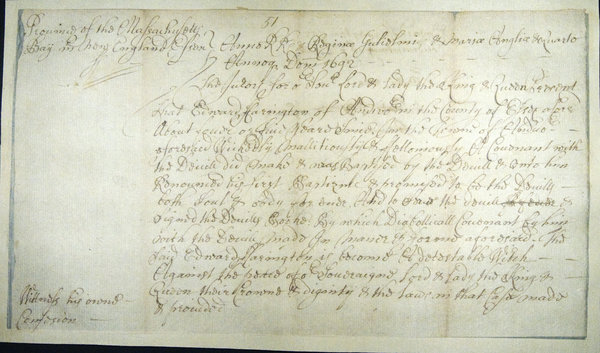 51
Province of the Massachusetts
Bay in New England Essex
Anno RRs & Reginæ Gulielmi & Mariæ Angliæ &c Quarto
Annoq Dom 1692
The Jurors for or Sovr Lord & Lady the King & Queen present
That Edward Farington of Andivor in the County of Essex afors
About four or five Years since In the Towne of Andivor
aforesaid Wickedly Mallitiously & felloniously A Covenant with
the Devill did make & was Baptised by the Devill & unto him
Renounced his first Baptizme & promised to be the Devills
both Soul & body for ever And to the Devill for ever &
signed the Devills Booke By which Diabollicall Covenant by him
with the Devill made In maner & forme aforesaid The
said Edward Farington is become A detestable Witch
Against the peace of or Soveraigne Lord & Lady the King &
Queen their Crowne & dignity & the laws in that Case made
& provided
Wittness his owne
Confession